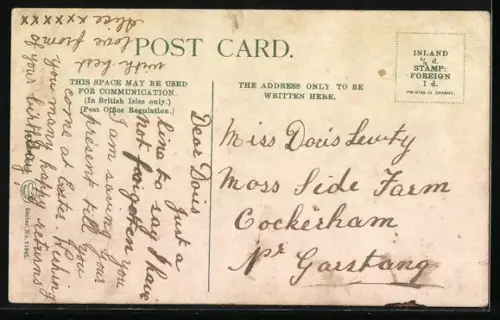 POST CARD.
THIS SPACE MAY BE USED
FOR COMMUNICATION.
(In British Isles only.)
(Post Office Regulation.)
THE ADDRESS ONLY TO BE
WRITTEN HERE.
INLAND
½d.
STAMP:
FOREIGN
1d.
PRINTED IN GERMANY.
Dear Doris
Just a
line to say I have
not forgotten you
I am saving your
present till you
come at Easter. Wishing
you many happy returns
of your birthday,
with best
love from
Alice xxx
xxxxxx
Miss Doris Lewty
Moss Side Farm
Cockerham
Nr Garstang
Series No.